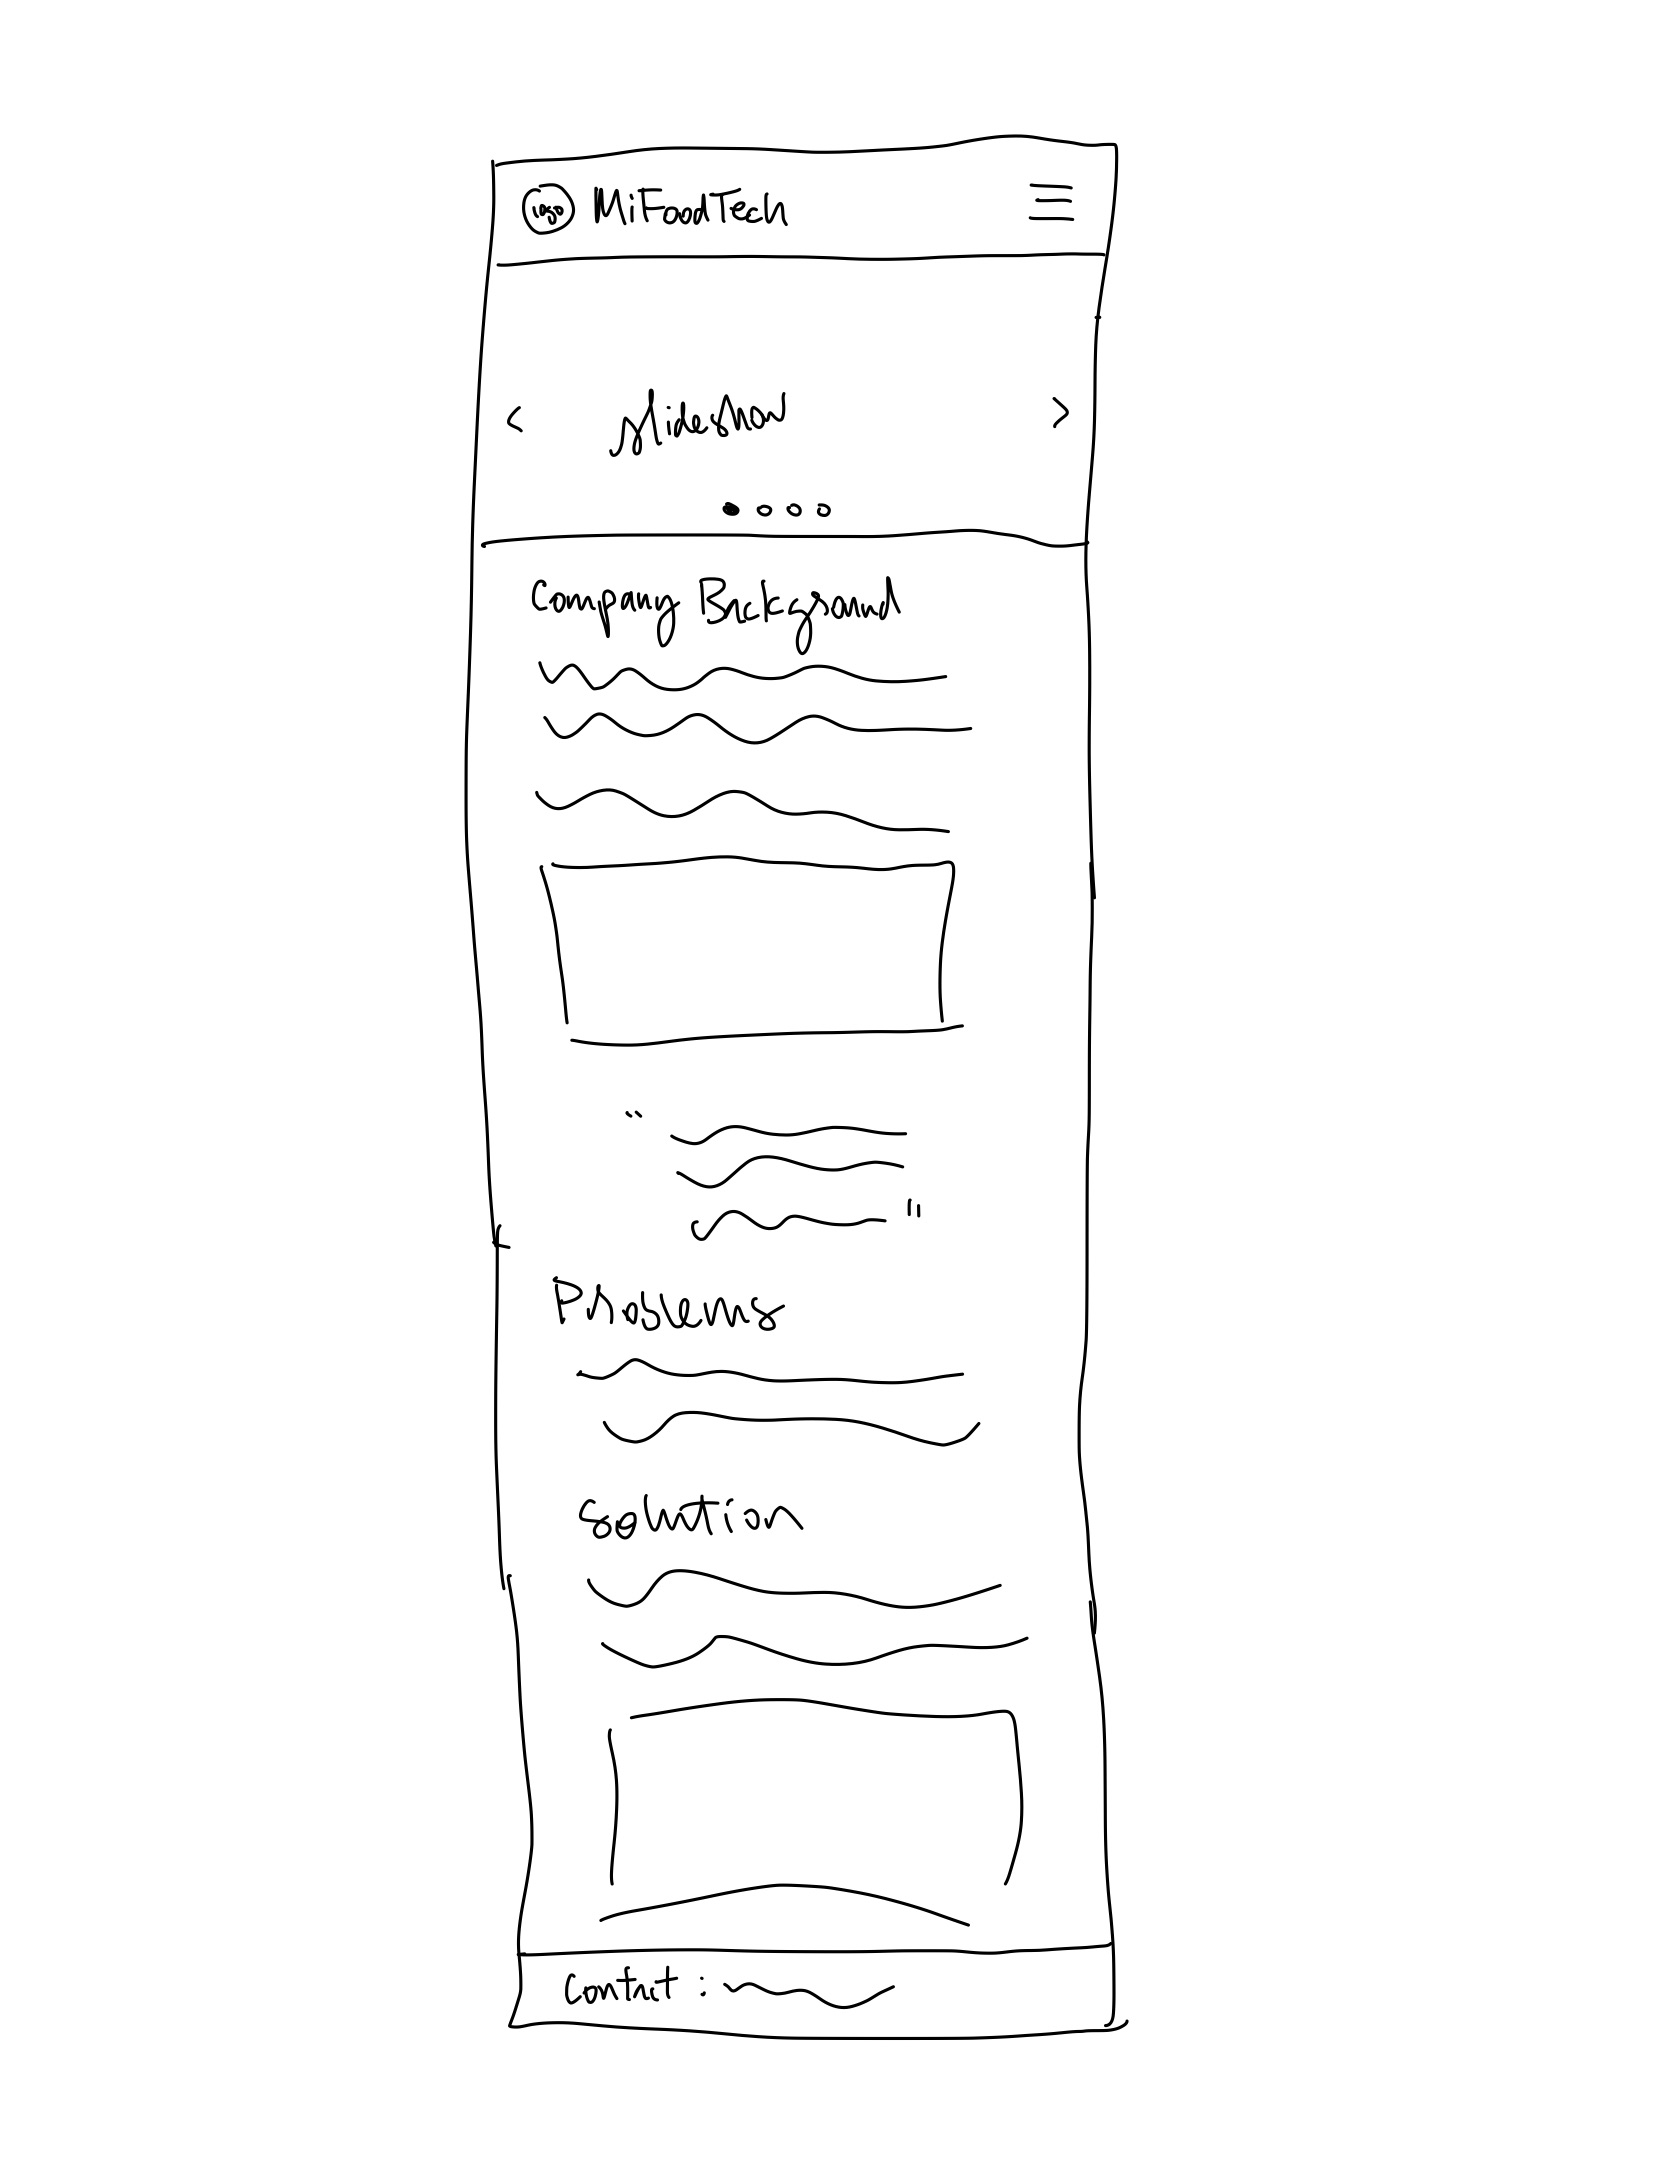 logo MiFoodTech
< slideshow >
Company Background
" "
Problems
Solution
Contact :